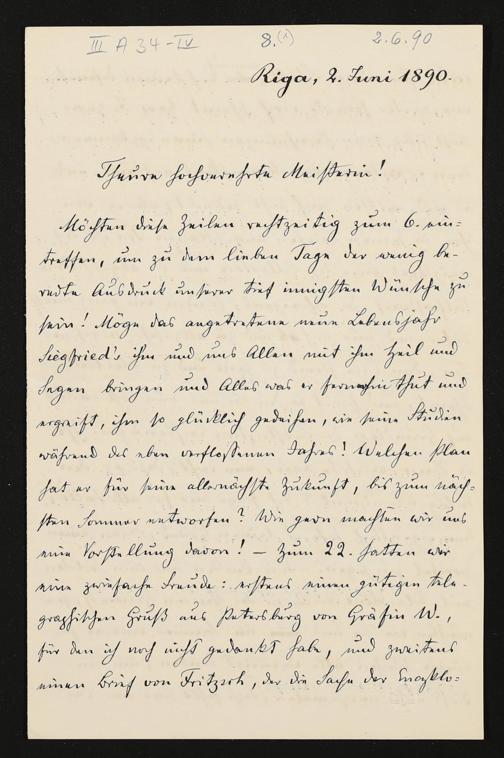 III A 34-IV 8.(x) 2.6.90
Riga, 2. Juni 1890.
Theure hochverehrte Meisterin!
Möchten diese Zeilen rechtzeitig zum 6. ein=
treffen, um zu dem lieben Tage der wenig be-
redte Ausdruck unserer tief innigsten Wünsche zu
sein! Möge das angetretene neue Lebensjahr
Siegfried's ihm und uns Allen mit ihm Heil und
Segen bringen und Alles was er fernerhin thut und
ergreift, ihm so glücklich gedeihen, wie seine Studien
während des eben verflossenen Jahres! Welchen Plan
hat er für seine allernächste Zukunft, bis zum näch=
sten Sommer entworfen? Wie gern machten wir uns
eine Vorstellung davon! — Zum 22. hatten wir
eine zwiefache Freude: erstens einen gütigen tele-
graphischen Gruß aus Petersburg von Gräfin W.,
für den ich noch nicht gedankt habe, und zweitens
einen Brief von Fritzsch, der die Sache der Encyklo=